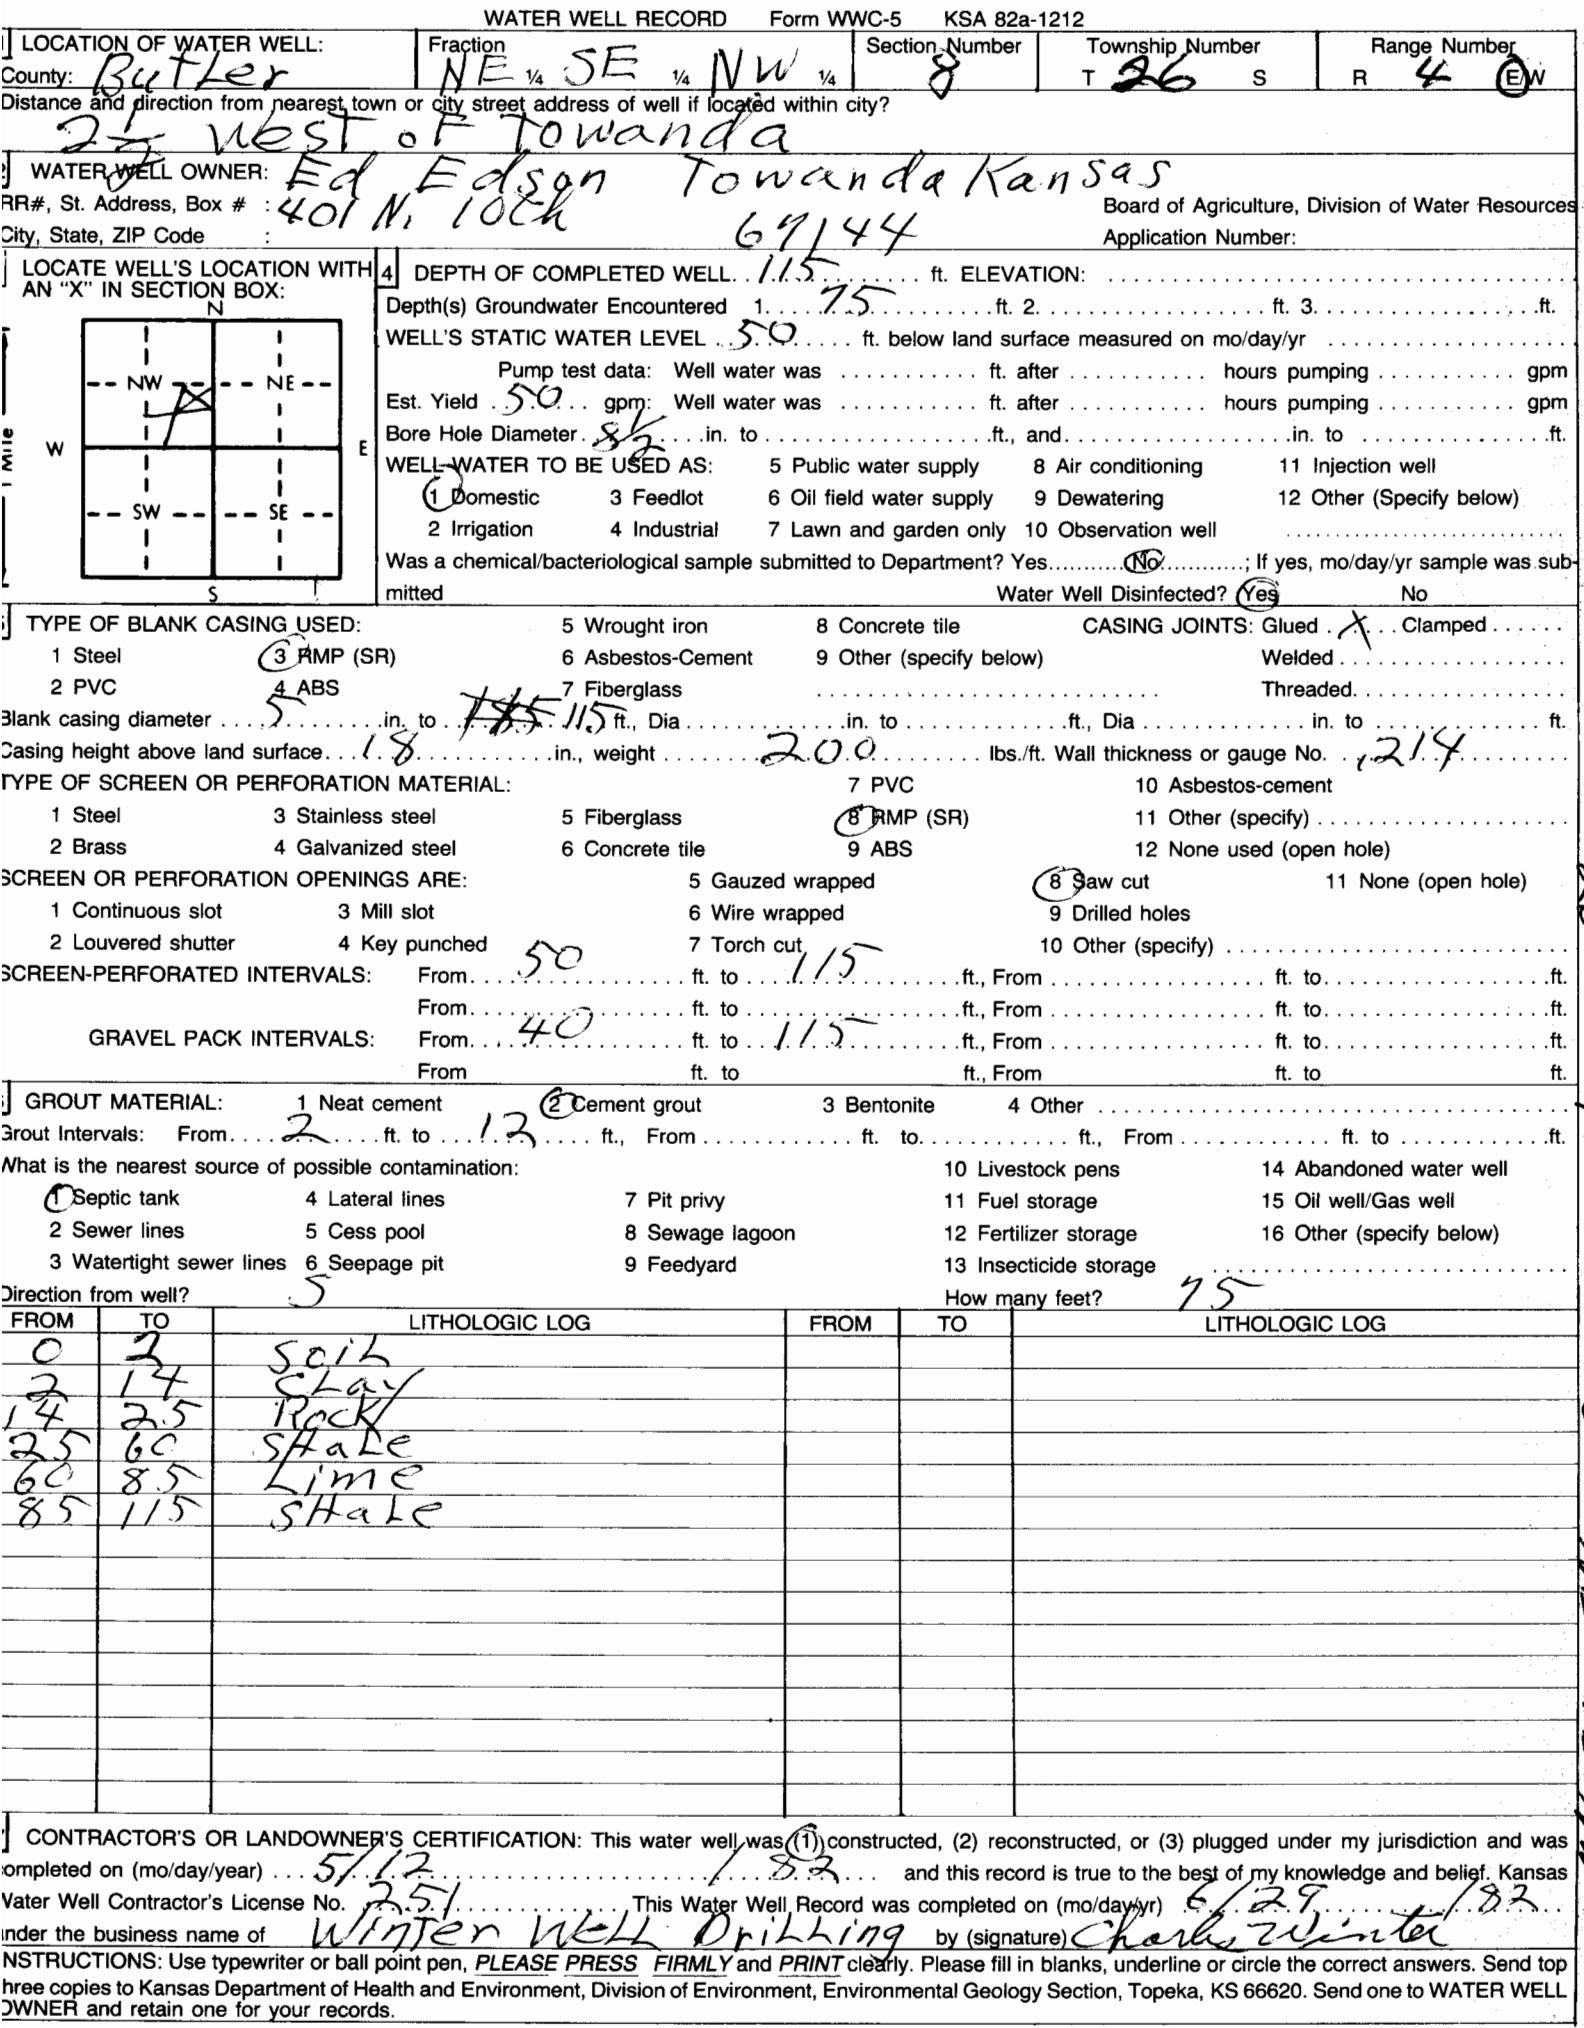 WATER WELL RECORD Form WWC-5 KSA 82a-1212
LOCATION OF WATER WELL: Fraction Section Number Township Number Range Number
County: Butler NE ¼ SE ¼ NW ¼ 8 T 26 S R 4 E/W
Distance and direction from nearest town or city street address of well if located within city?
2½ West of Towanda
WATER WELL OWNER: Ed Edson Towanda Kansas
RR#, St. Address, Box # : 401 N. 10th Board of Agriculture, Division of Water Resources
City, State, ZIP Code : 67144 Application Number:
LOCATE WELL'S LOCATION WITH AN "X" IN SECTION BOX:
N
NW NE
W E
SW SE
S
1 Mile
4 DEPTH OF COMPLETED WELL. 115 ft. ELEVATION:
Depth(s) Groundwater Encountered 1. 75 ft. 2. ft. 3. ft.
WELL'S STATIC WATER LEVEL 50 ft. below land surface measured on mo/day/yr
Pump test data: Well water was ft. after hours pumping gpm
Est. Yield 50 gpm: Well water was ft. after hours pumping gpm
Bore Hole Diameter 8½ in. to ft., and in. to ft.
WELL WATER TO BE USED AS: 5 Public water supply 8 Air conditioning 11 Injection well
1 Domestic 3 Feedlot 6 Oil field water supply 9 Dewatering 12 Other (Specify below)
2 Irrigation 4 Industrial 7 Lawn and garden only 10 Observation well
Was a chemical/bacteriological sample submitted to Department? Yes No ; If yes, mo/day/yr sample was sub-
mitted Water Well Disinfected? Yes No
TYPE OF BLANK CASING USED: 5 Wrought iron 8 Concrete tile CASING JOINTS: Glued X Clamped
1 Steel 3 RMP (SR) 6 Asbestos-Cement 9 Other (specify below) Welded
2 PVC 4 ABS 7 Fiberglass Threaded
Blank casing diameter 5 in. to 115 ft., Dia in. to ft., Dia in. to ft.
Casing height above land surface 18 in., weight 200 lbs./ft. Wall thickness or gauge No. .214
TYPE OF SCREEN OR PERFORATION MATERIAL: 7 PVC 10 Asbestos-cement
1 Steel 3 Stainless steel 5 Fiberglass 8 RMP (SR) 11 Other (specify)
2 Brass 4 Galvanized steel 6 Concrete tile 9 ABS 12 None used (open hole)
SCREEN OR PERFORATION OPENINGS ARE: 5 Gauzed wrapped 8 Saw cut 11 None (open hole)
1 Continuous slot 3 Mill slot 6 Wire wrapped 9 Drilled holes
2 Louvered shutter 4 Key punched 7 Torch cut 10 Other (specify)
SCREEN-PERFORATED INTERVALS: From 50 ft. to 115 ft., From ft. to ft.
From ft. to ft., From ft. to ft.
GRAVEL PACK INTERVALS: From 40 ft. to 115 ft., From ft. to ft.
From ft. to ft., From ft. to ft.
GROUT MATERIAL: 1 Neat cement 2 Cement grout 3 Bentonite 4 Other
Grout Intervals: From 2 ft. to 12 ft., From ft. to ft., From ft. to ft.
What is the nearest source of possible contamination: 10 Livestock pens 14 Abandoned water well
1 Septic tank 4 Lateral lines 7 Pit privy 11 Fuel storage 15 Oil well/Gas well
2 Sewer lines 5 Cess pool 8 Sewage lagoon 12 Fertilizer storage 16 Other (specify below)
3 Watertight sewer lines 6 Seepage pit 9 Feedyard 13 Insecticide storage
Direction from well? S How many feet? 75
FROM TO LITHOLOGIC LOG FROM TO LITHOLOGIC LOG
0 2 Soil
2 14 Clay
14 25 Rock
25 60 Shale
60 85 Lime
85 115 Shale
CONTRACTOR'S OR LANDOWNER'S CERTIFICATION: This water well was (1) constructed, (2) reconstructed, or (3) plugged under my jurisdiction and was
completed on (mo/day/year) 5/12/82 and this record is true to the best of my knowledge and belief. Kansas
Water Well Contractor's License No. 251 This Water Well Record was completed on (mo/day/yr) 6/29/82
under the business name of Winter Well Drilling by (signature) Charles Winter
INSTRUCTIONS: Use typewriter or ball point pen, PLEASE PRESS FIRMLY and PRINT clearly. Please fill in blanks, underline or circle the correct answers. Send top
three copies to Kansas Department of Health and Environment, Division of Environment, Environmental Geology Section, Topeka, KS 66620. Send one to WATER WELL
OWNER and retain one for your records.